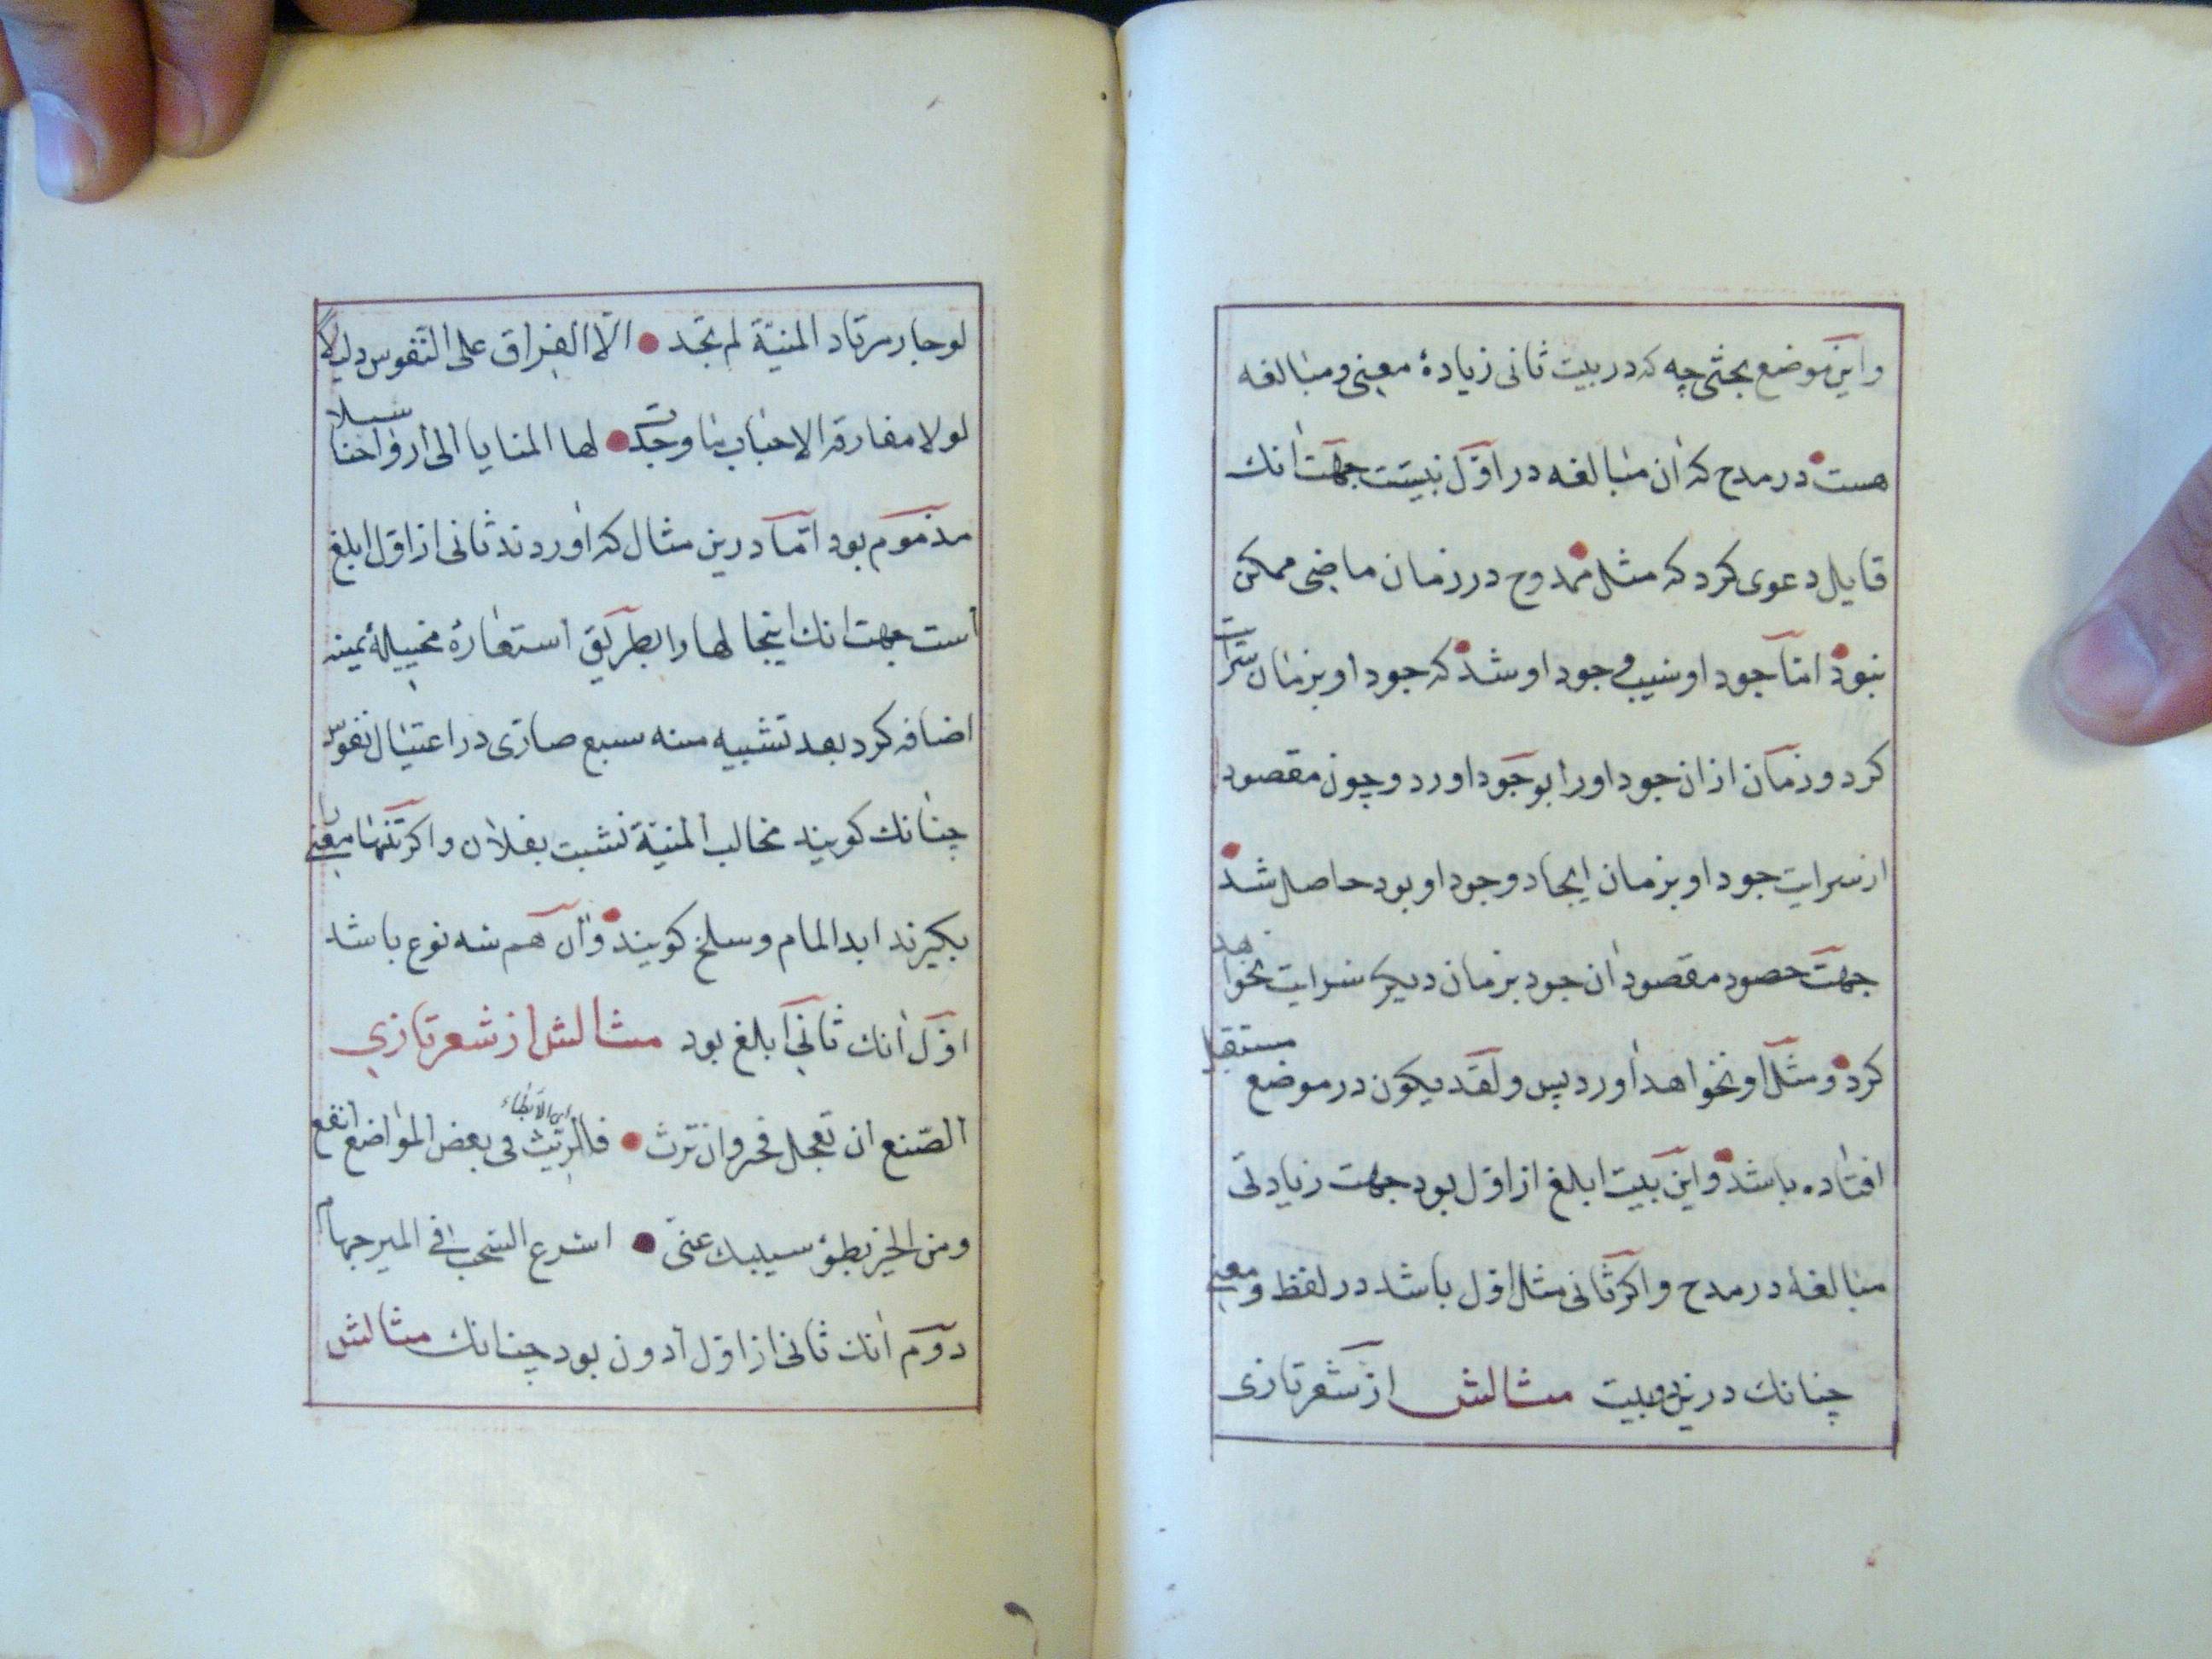 واین موضع بحثی چه که در بیت ثانی زیادهٔ معنی و مبالغه
هست در مدح که آن مبالغه در اوّل نیست جهت آنك
قایل دعوی کرد که مثل ممدوح در زمان ماضی ممکن
نبود امّا جود او سبب وجود او شد که جود او بزمان سرایت
کرد و زمان از ان جود او را بوجود اورد و چون مقصود
از سرایت جود او بزمان ایجاد وجود او بود حاصل شد
جهت حصود مقصود آن جود بزمان دیکر سرایت نخواهد
کرد و مثل او نخواهد آورد پس ولقد یکون در موضع مستقبل
افتاده باشد و این بیت ابلغ از اوّل بود جهت زیادتی
مبالغهٔ در مدح و اکر ثانی مثل اوّل باشد در لفظ و معنی
چنانك درین دو بیت مثالش از شعر تازی
لو حار مرتاد المنیّة لم تجد الّا الفراق علی النّفوس دلیلا
لولا مفارقة الاحباب ما وجدت لها المنایا الی ارواحنا سبلا
مذموم بود امّا درین مثال که آوردند ثانی از اوّل ابلغ
است جهت انك اینجا لها را بطریق استعارهٔ تخییلهٔ بمینه
اضافه کرد بعد تشبیه منه سبع صاری در اغتیال نفوس
چنانك کویند مخالب المنیّة نشبت بفلان و اکر تنها معنی را
بکیرند ابدا المام و سلخ کویند و آن هم سه نوع باشد
اوّل آنك ثانی ابلغ بود مثالش از شعر تازی
الصّنع ان تعجل فخر وان ترث فالریث فی بعض المواضع انفع
ای الابطاء
ومن الخیر بطؤ سیبك عنی اسرع السّحب فی المیر جهام
دوّم آنك ثانی از اوّل ادون بود چنانك مثالش